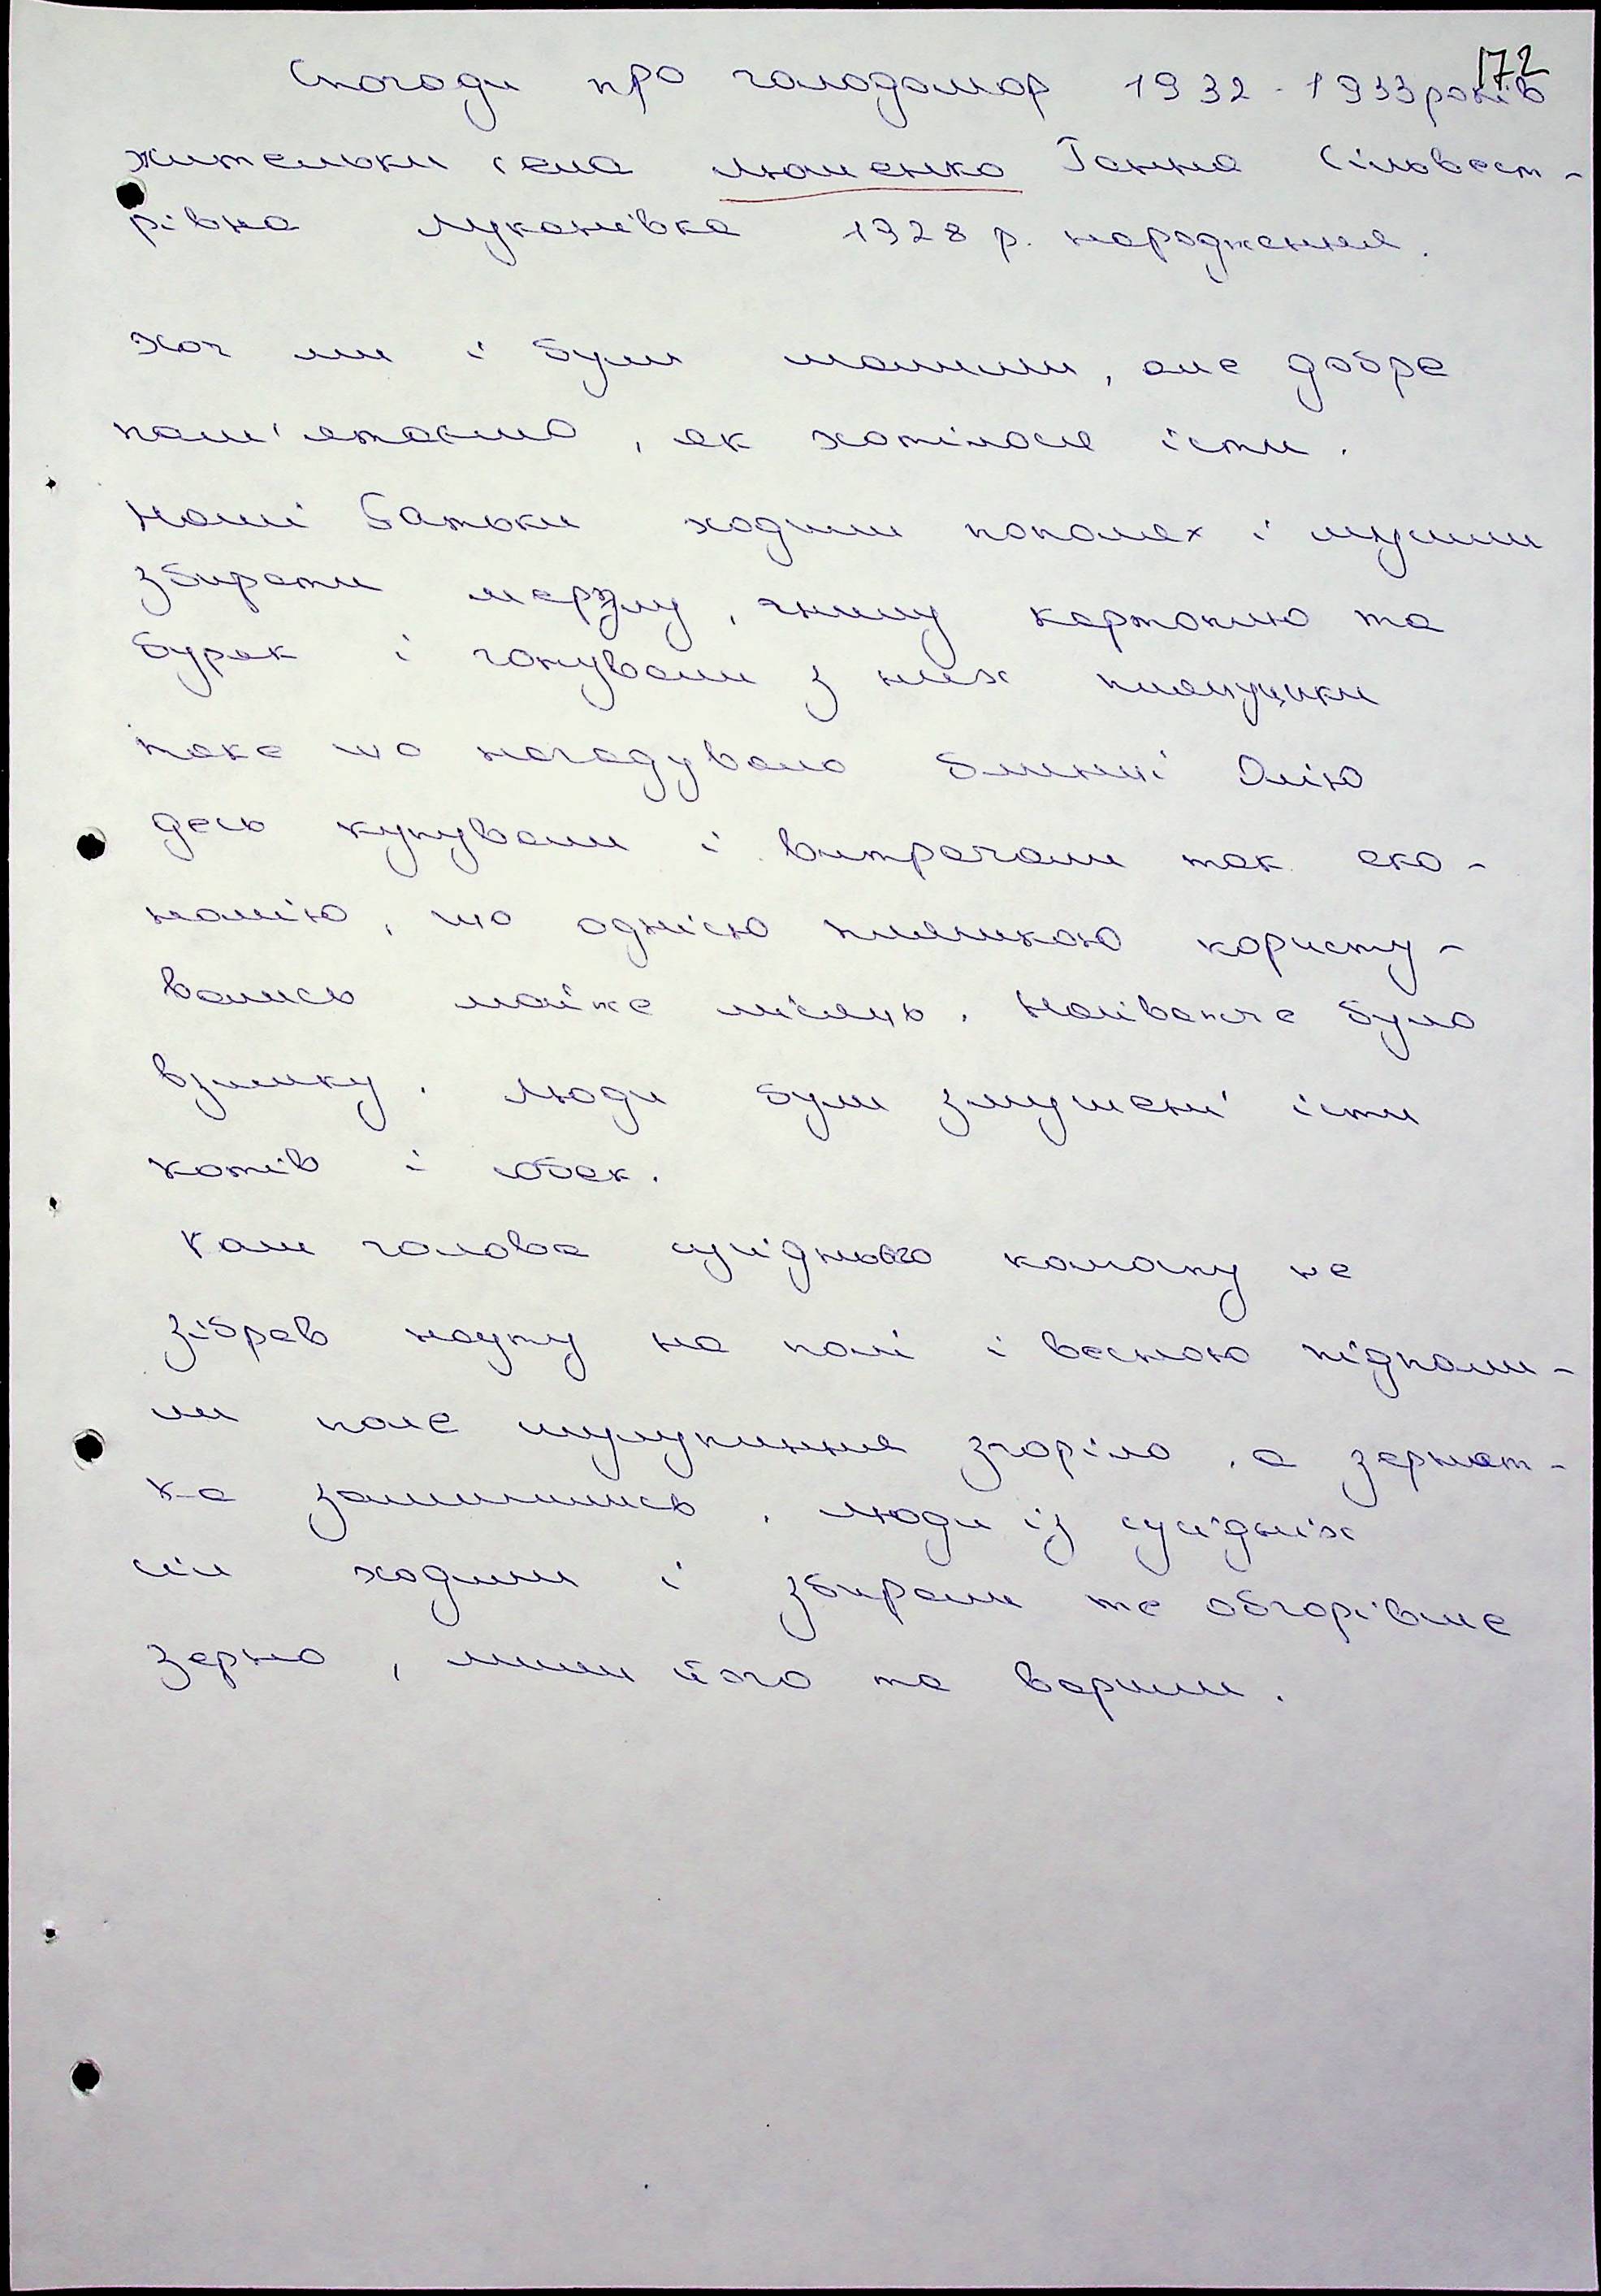 172
Спогади про голодомор 1932-1933 років
жительки села Люшенко Ганна Сільвест-
рівна Луканівка 1928 р. народження.
Хоч ми і були малими, але добре
пам'ятаємо, як хотілося їсти.
Наші батьки ходили пополях і мусили
збирати мерзлу, гнилу картоплю та
буряк і готували з них пляцики
таке що нагадувало блинчі Олію
десь купували і витрачали так еко-
номію, що однією пляшкою користу-
вались майже місяць. Найважче було
взимку. Люди були змушені їсти
котів і собак.
Коли голова сусіднього колгоспу не
зібрав науту на полі і весною підпали-
ли поле шулупиння згоріло, а зернят-
ка залишились, люди із сусідніх
сіл ходили і збирали те обгорівше
зерно, мили його та варили.